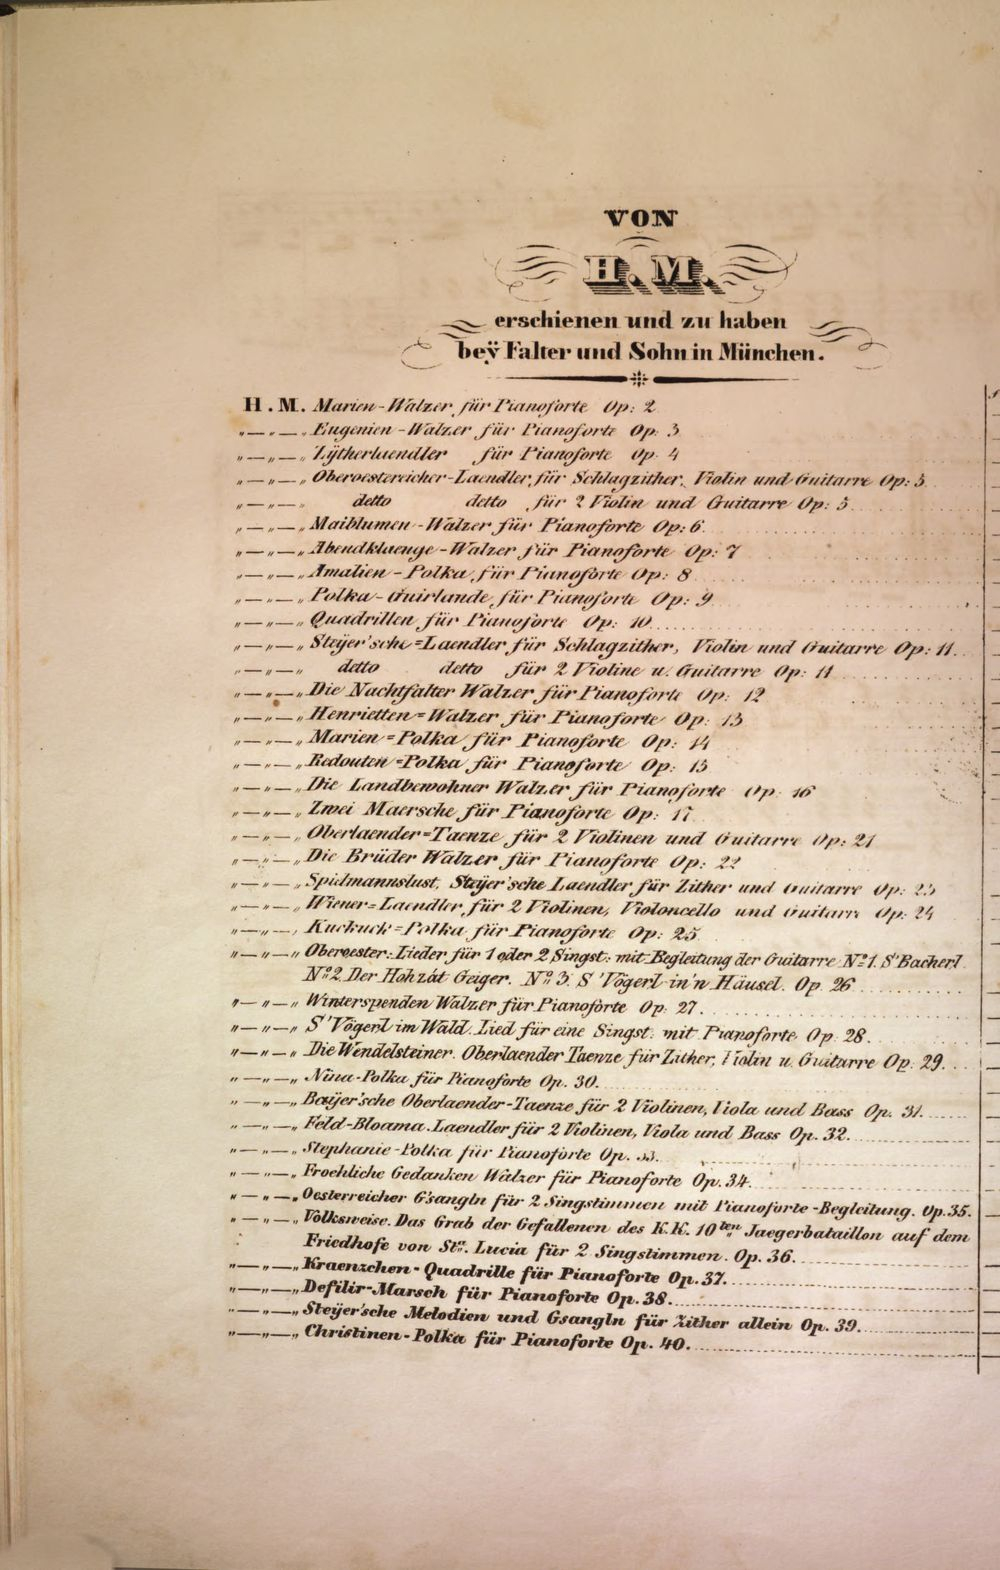 VON
H. M.
erschienen und zu haben
beÿ Falter und Sohn in München.
H. M. Marien-Walzer für Pianoforte Op: 2
„—„—„ Eugenien-Walzer für Pianoforte Op: 3
„—„—„ Zÿtherlaendler für Pianoforte Op: 4
„—„—„ Oberoestereicher-Laendler für Schlagzither, Violin und Guitarre Op: 5
„—„—„ detto detto für 2 Violin und Guitarre Op: 5
„—„—„ Maiblumen-Walzer für Pianoforte Op: 6
„—„—„ Abendklaenge-Walzer für Pianoforte Op: 7
„—„—„ Amalien-Polka für Pianoforte Op: 8
„—„—„ Polka-Guirlande für Pianoforte Op: 9
„—„—„ Quadrillen für Pianoforte Op: 10
„—„—„ Steÿer'sche=Laendler für Schlagzither, Violin und Guitarre Op: 11
„—„—„ detto detto für 2 Violine u. Guitarre Op: 11
„—„—„ Die Nachtfalter Walzer für Pianoforte Op: 12
„—„—„ Henrietten=Walzer für Pianoforte Op: 13
„—„—„ Marien=Polka für Pianoforte Op: 14
„—„—„ Redouten=Polka für Pianoforte Op: 15
„—„—„ Die Landbewohner Walzer für Pianoforte Op: 16
„—„—„ Zwei Maersche für Pianoforte Op: 17
„—„—„ Oberlaender=Taenze für 2 Violinen und Guitarre Op: 21
„—„—„ Die Brüder Walzer für Pianoforte Op: 22
„—„—„ Spielmannslust, Steÿer'sche Laendler für Zither und Guitarre Op: 23
„—„—„ Wiener=Laendler für 2 Violinen, Violoncello und Guitarre Op: 24
„—„—„ Kuckuck=Polka für Pianoforte Op: 25
„—„—„ Oberoester: Lieder für 1 oder 2 Singst: mit Begleitung der Guitarre No. 1. S'Bacherl
No. 2. Der Hohzát Geiger. No. 3. S'Vögerl in'n Häusel. Op. 26
„—„—„ Winterspenden Walzer für Pianoforte Op: 27.
„—„—„ S'Vögerl im Wald. Lied für eine Singst: mit Pianoforte Op: 28.
„—„—„ Die Wendelsteiner. Oberlaender Taenze für Zither, Violin u. Guitarre Op. 29.
„—„—„ Nina-Polka für Pianoforte Op. 30.
„—„—„ Baÿer'sche Oberlaender-Taenze für 2 Violinen, Viola und Bass Op. 31.
„—„—„ Feld-Bloama. Laendler für 2 Violinen, Viola und Bass Op. 32.
„—„—„ Stephanie-Polka für Pianoforte Op. 33.
„—„—„ Froehliche Gedanken Walzer für Pianoforte Op. 34.
„—„—„ Oesterreicher G'sangln für 2 Singstimmen mit Pianoforte-Begleitung. Op. 35.
„—„—„ Volksweise. Das Grab der Gefallenen des K.K. 10ten Jaegerbataillon auf dem
Friedhofe von Sta. Lucia für 2 Singstimmen. Op. 36.
„—„—„ Kraenzchen-Quadrille für Pianoforte Op. 37.
„—„—„ Defilir-Marsch für Pianoforte Op. 38.
„—„—„ Steÿer'sche Melodien und Gsangln für Zither allein Op. 39.
„—„—„ Christinen-Polka für Pianoforte Op. 40.